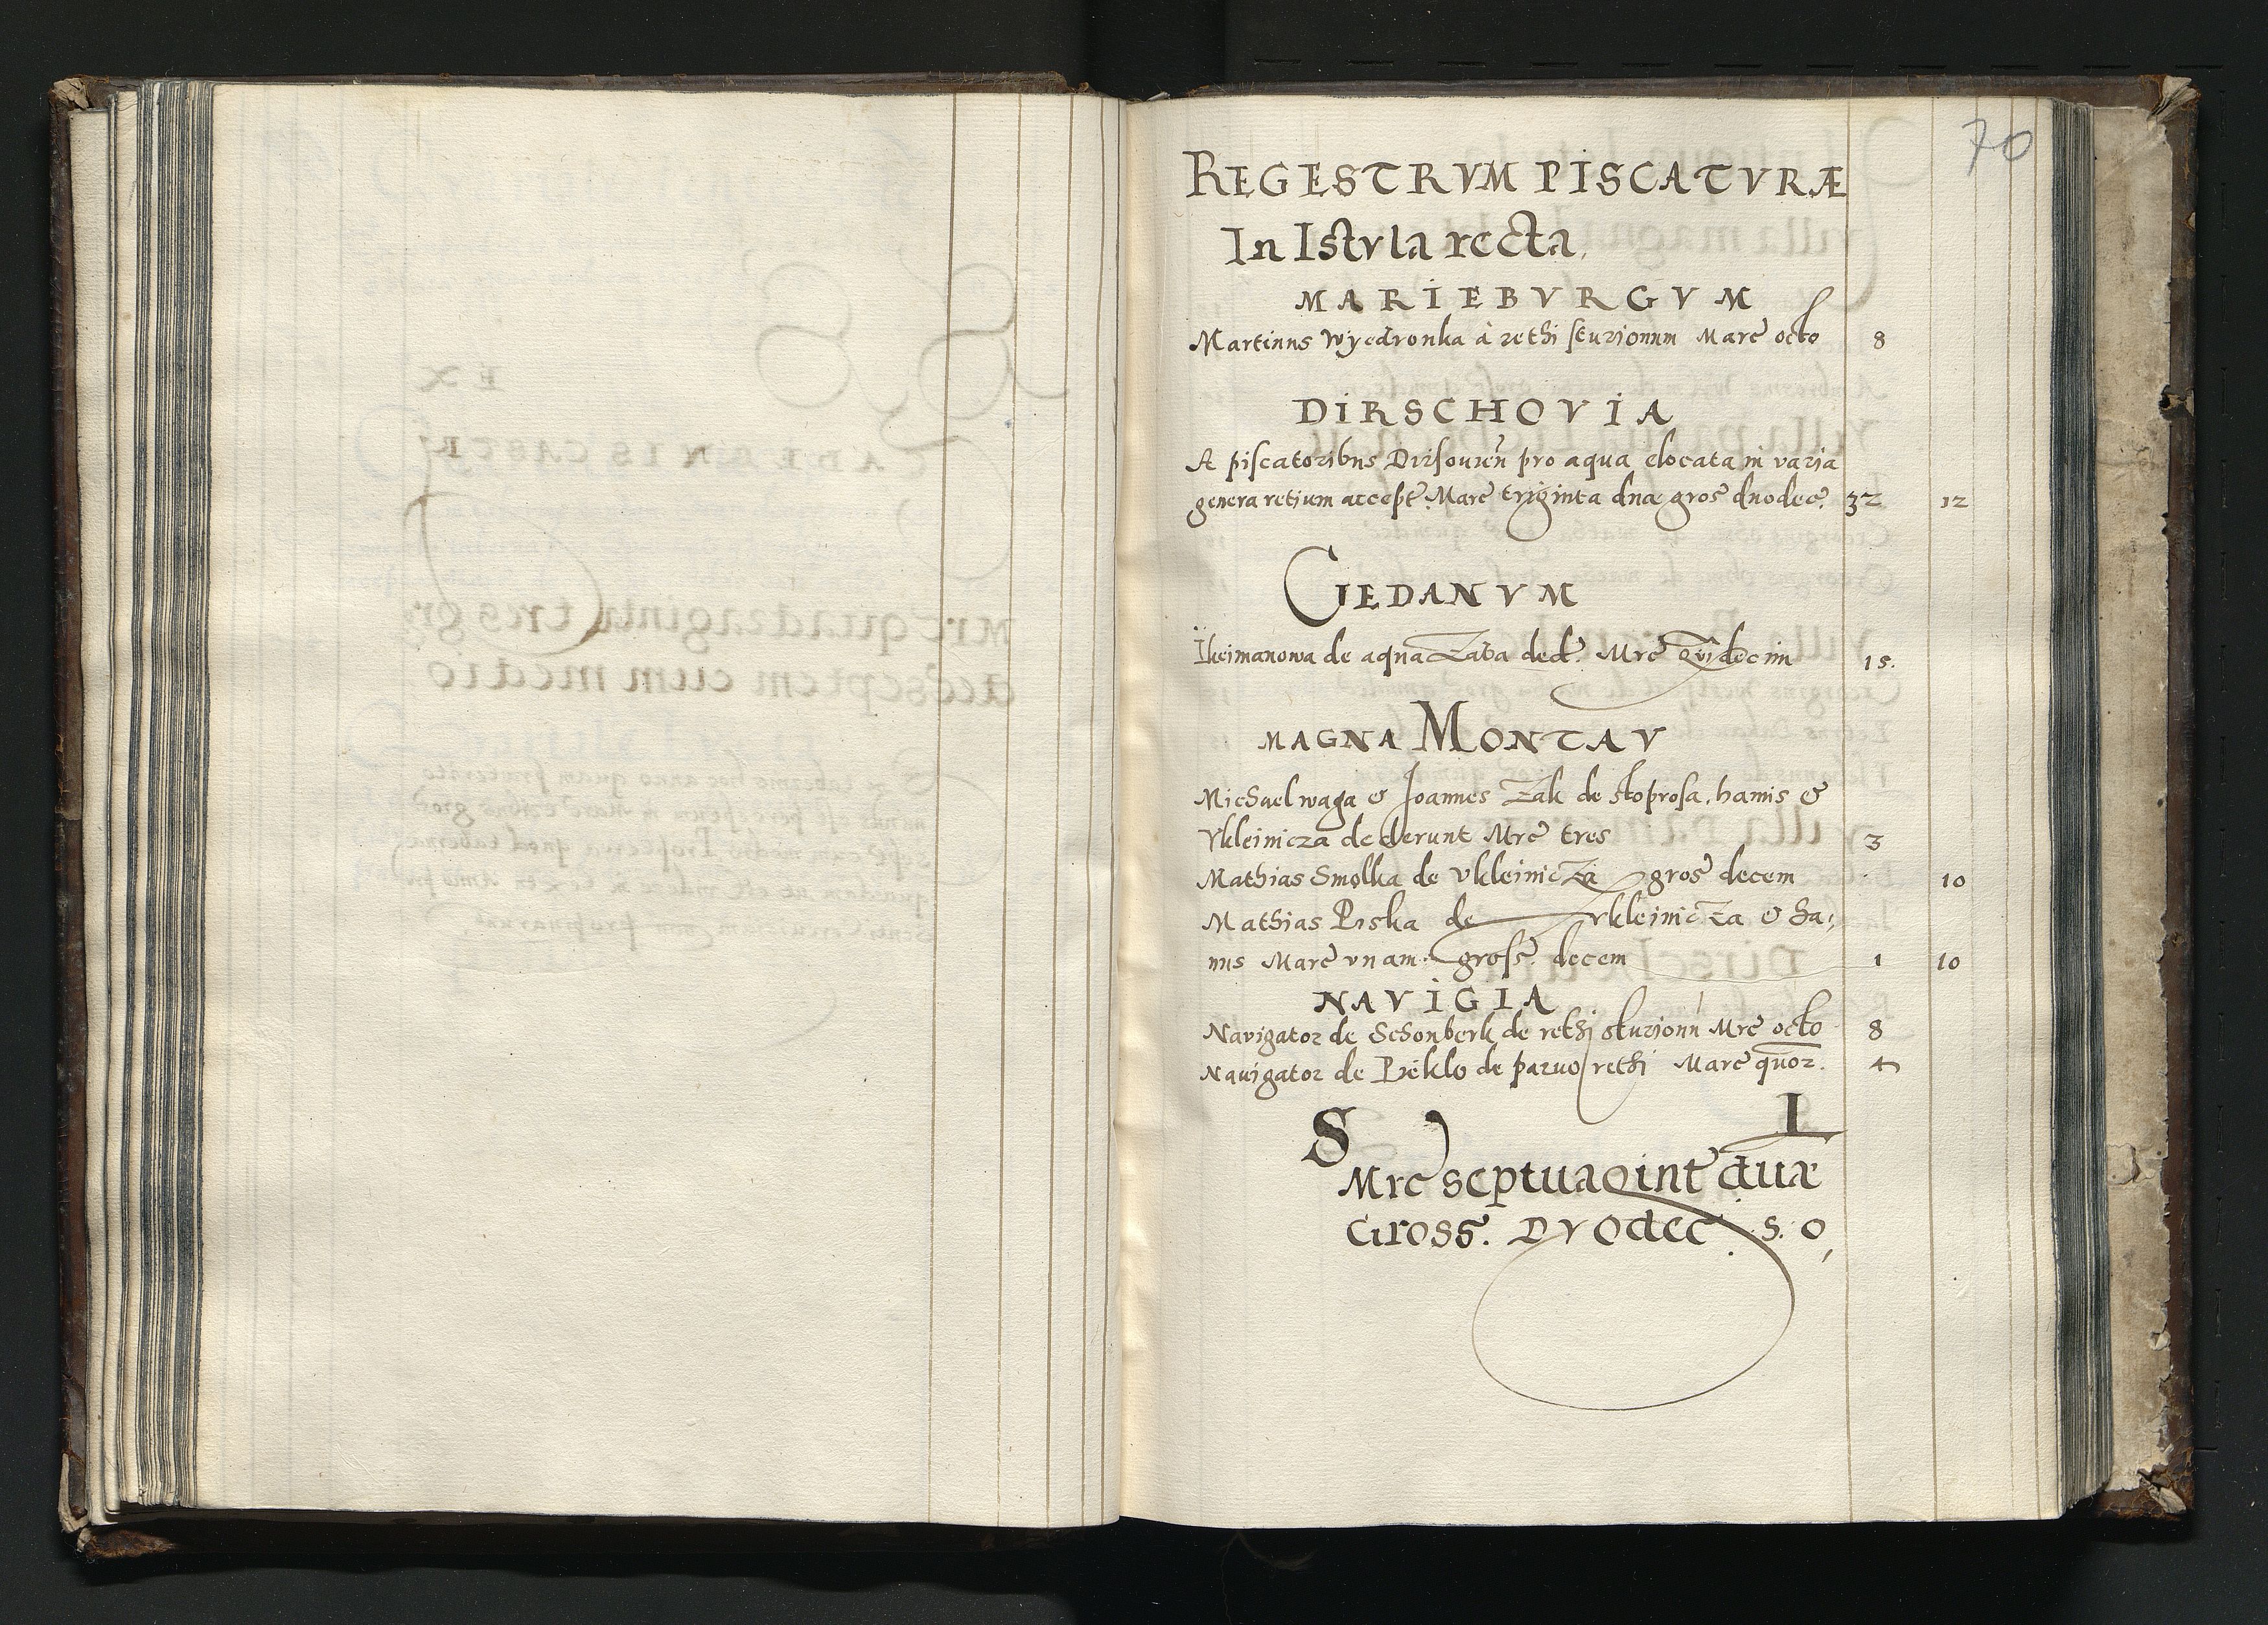 70
REGESTRVM PISCATVRÆ
In Istvla recta
MARIEBVRGVM
Martinus Wyedronka à rethi sturionum Marc octo 8
DIRSCHOVIA
A piscatoribus Dirsouien pro aqua elocata in varia
genera retium accept. Marc triginta duæ gros duodec. 32 12
GEDANVM
de aqua Zaba ded. Mrc Qvīdecim 15.
MAGNA MONTAV
Michael waga & Joannes Zak de stoprosa, hamis &
Vkleinicza dederunt Mrc tres 3
Mathias Smolka de Vkleinicza gros decem 10
Mathias Piska de vkleinicza & ha,
mis Marc vnam gross. decem 1 10
NAVIGIA
Navigator de Schonberk de rethi sturionū Mrc octo 8
Nauigator de Pieklo de paruo rethi Marc quor. 4
S I
Mrc septuagint duæ
Gross. Dvodec. S. O,